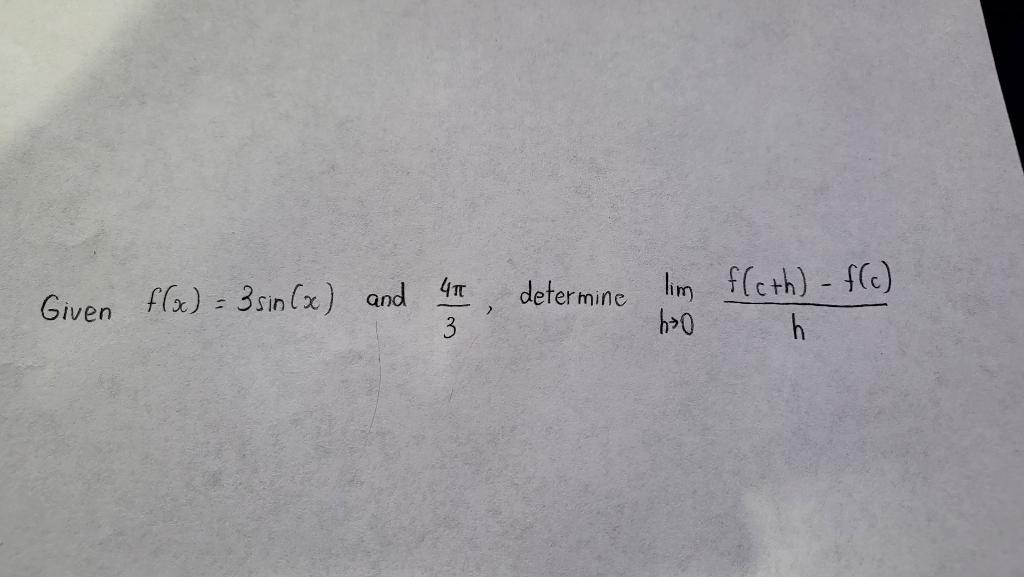 Given f(x) = 3sin(x) and 4π/3, determine lim h→0 f(c+h) - f(c)/h